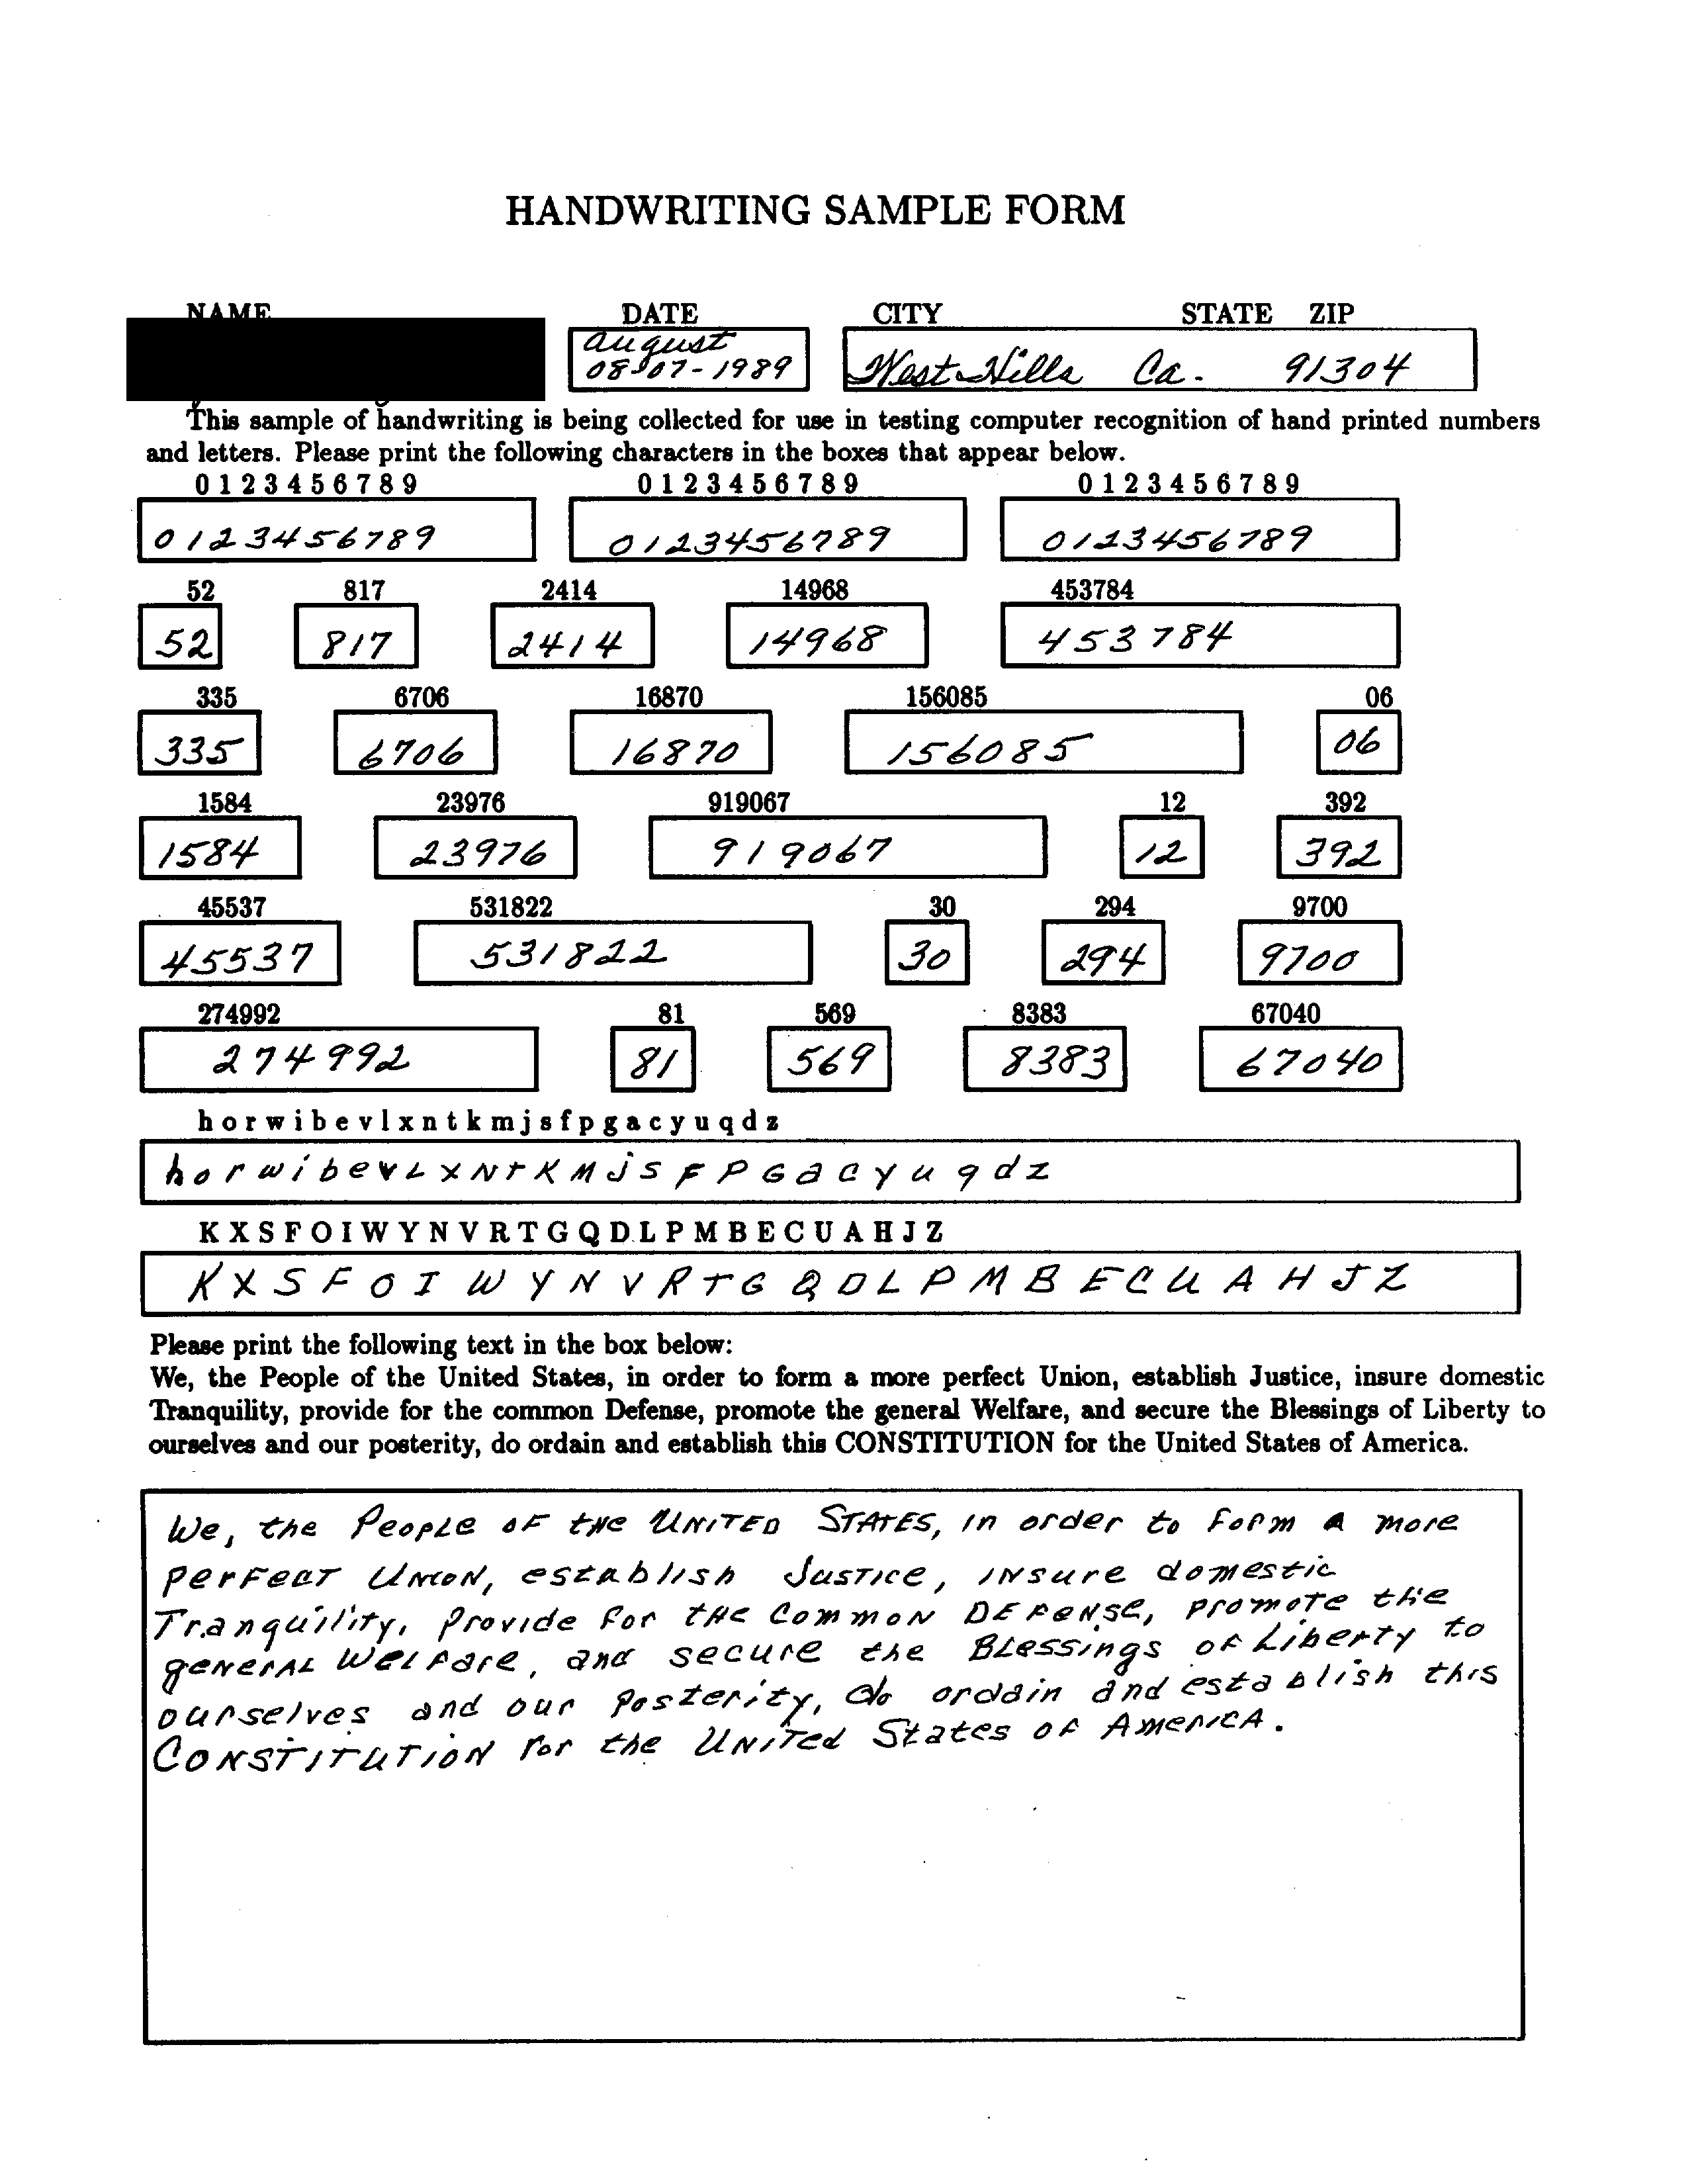 HANDWRITING SAMPLE FORM
NAME DATE CITY STATE ZIP
august
08-07-1989 West Hills Ca. 91304
This sample of handwriting is being collected for use in testing computer recognition of hand printed numbers
and letters. Please print the following characters in the boxes that appear below.
0 1 2 3 4 5 6 7 8 9 0 1 2 3 4 5 6 7 8 9 0 1 2 3 4 5 6 7 8 9
0123456789 0123456789 0123456789
52 817 2414 14968 453784
52 817 2414 14968 453784
335 6706 16870 156085 06
335 6706 16870 156085 06
1584 23976 919067 12 392
1584 23976 919067 12 392
45537 531822 30 294 9700
45537 531822 30 294 9700
274992 81 569 8383 67040
274992 81 569 8383 67040
h o r w i b e v l x n t k m j s f p g a c y u q d z
h o r w i b e v L X N t K M j S F P G a c y u q d z
K X S F O I W Y N V R T G Q D L P M B E C U A H J Z
K X S F O I W Y N V R T G Q D L P M B E C U A H J Z
Please print the following text in the box below:
We, the People of the United States, in order to form a more perfect Union, establish Justice, insure domestic
Tranquility, provide for the common Defense, promote the general Welfare, and secure the Blessings of Liberty to
ourselves and our posterity, do ordain and establish this CONSTITUTION for the United States of America.
We, the PeopLe oF tHe UNITED STATES, in order to Form A more
perFecT UNION, estAblish JusTice, iNsure domestic
Tranquility, Provide For tHe CommoN DEFeNSe, promoTe tHe
geNerAL WeLFare, and secure the BLessings oF Liberty to
ourselves and our Posterity, do orddin and establish this
CONSTITUTION For the UNiTed States oF AmericA.